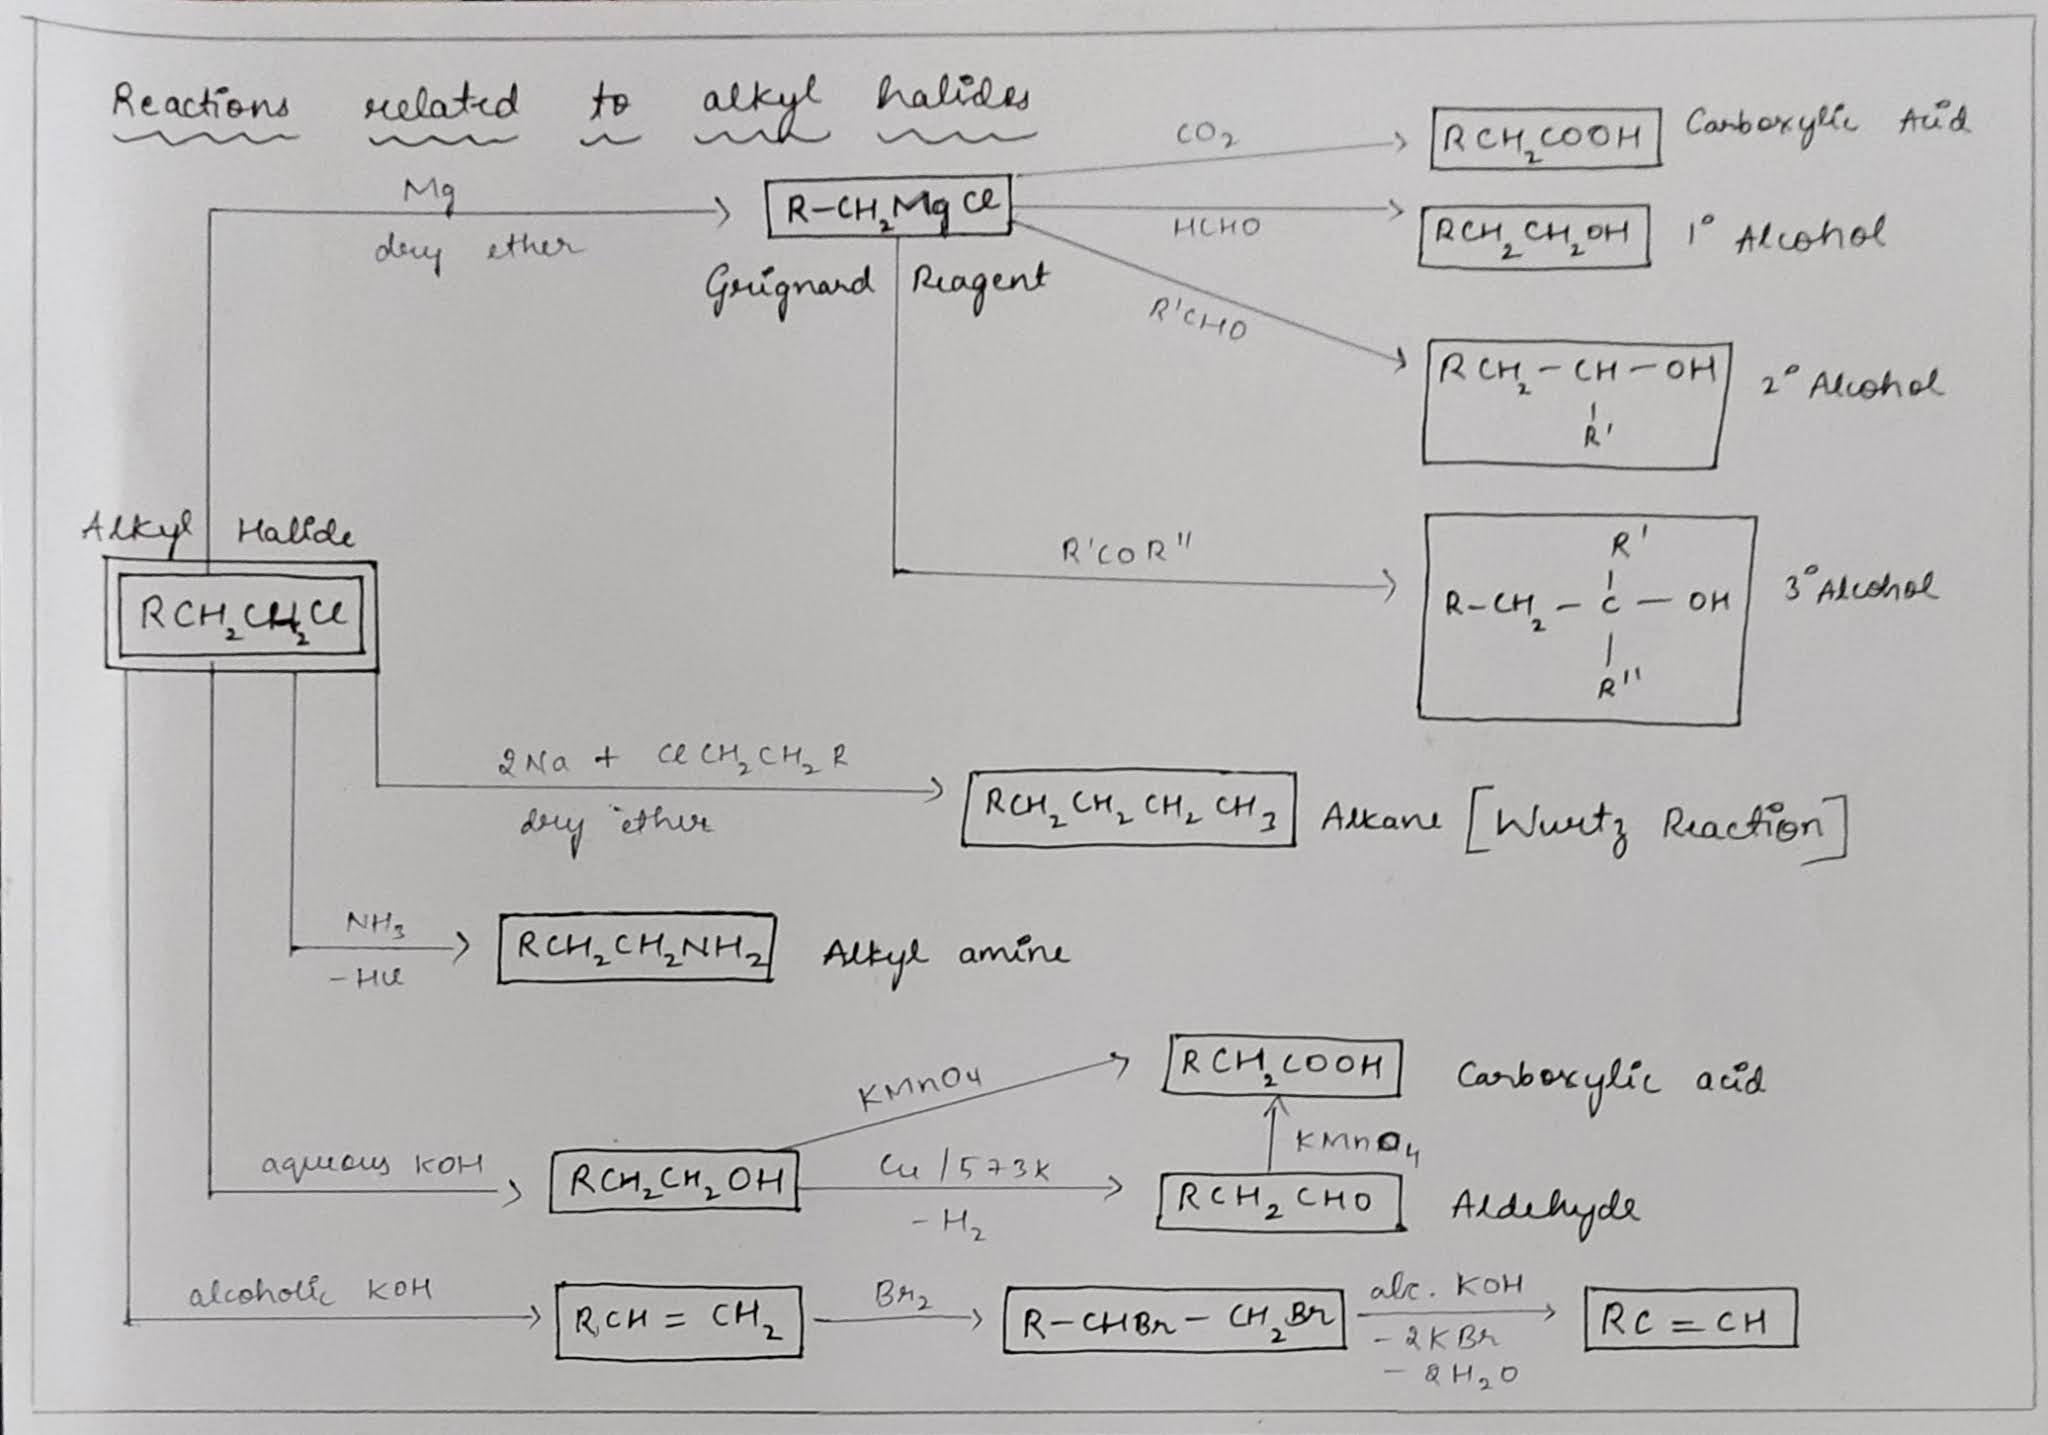 Reactions related to alkyl halides
Mg
dry ether
R-CH₂MgCl
Grignard Reagent
CO₂
RCH₂COOH Carboxylic Acid
HCHO
RCH₂CH₂OH 1° Alcohol
R'CHO
RCH₂-CH-OH 2° Alcohol
R'
R'COR"
R'
R-CH₂-C-OH 3° Alcohol
R"
Alkyl Halide
RCH₂CH₂Cl
2Na + ClCH₂CH₂R
dry ether
RCH₂CH₂CH₂CH₃ Alkane [Wurtz Reaction]
NH₃
-HCl
RCH₂CH₂NH₂ Alkyl amine
aqueous KOH
RCH₂CH₂OH
KMnO₄
RCH₂COOH Carboxylic acid
KMnO₄
Cu/573K
-H₂
RCH₂CHO Aldehyde
alcoholic KOH
RCH=CH₂
Br₂
R-CHBr-CH₂Br
alc. KOH
-2KBr
-2H₂O
RC=CH